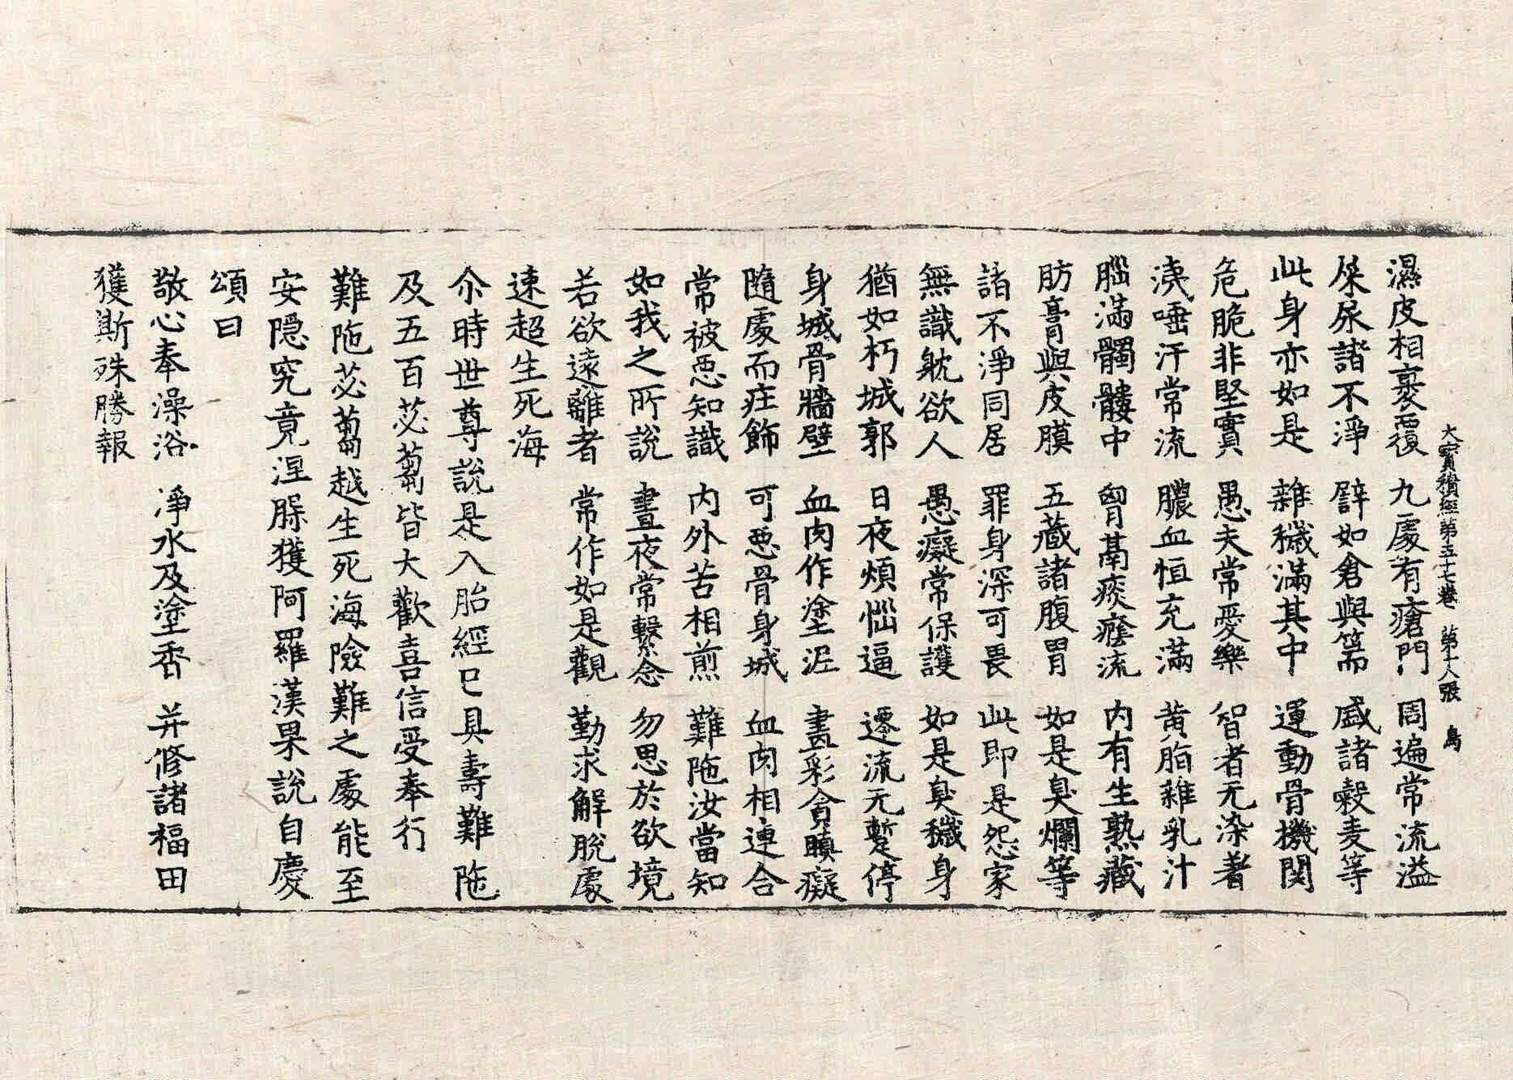 大寶積經第五十七卷　第十八張　鳥
濕皮相裹覆　九處有瘡門　周遍常流溢
屎尿諸不淨　譬如倉與篅　盛諸穀麦等
此身亦如是　雜穢滿其中　運動骨機関
危脆非堅實　愚夫常愛樂　智者无染著
洟唾汗常流　膿血恒充滿　黃脂雜乳汁
腦滿髑髏中　胷鬲痰癊流　内有生熟藏
肪膏與皮膜　五藏諸腹胃　如是臭爛等
諸不淨同居　罪身深可畏　此即是怨家
無識躭欲人　愚癡常保護　如是臭穢身
猶如朽城郭　日夜煩惱逼　遷流无蹔停
身城骨牆壁　血肉作塗泥　畫彩貪瞋癡
隨處而莊飾　可惡骨身城　血肉相連合
常被惡知識　内外苦相煎　難陁汝當知
如我之所說　晝夜常繫念　勿思於欲境
若欲遠離者　常作如是觀　勤求解脫處
速超生死海
尒時世尊說是入胎經已具壽難陁
及五百苾蒭皆大歡喜信受奉行
難陁苾蒭越生死海險難之處能至
安隱究竟涅槃獲阿羅漢果說自慶
頌曰
敬心奉澡浴　淨水及塗香　并修諸福田
獲斯殊勝報